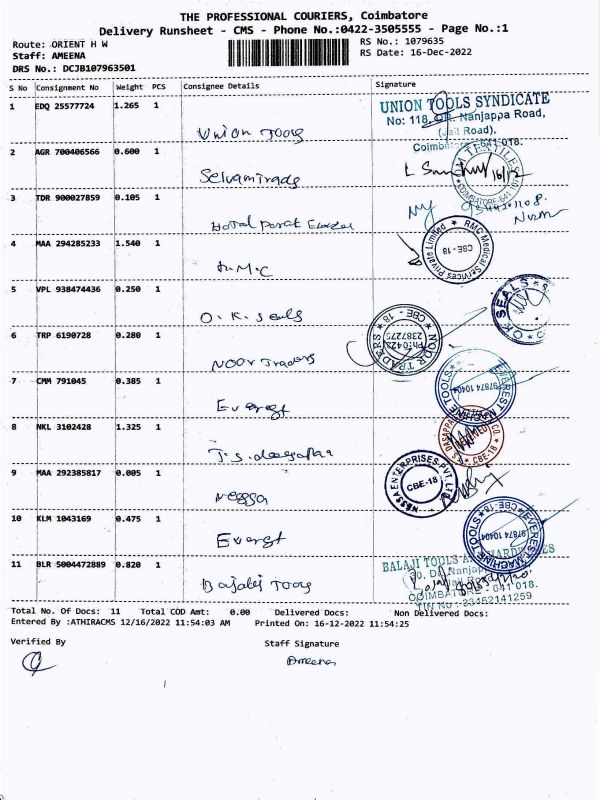 THE PROFESSIONAL COURIERS, Coimbatore
Delivery Runsheet - CMS - Phone No.:0422-3505555 - Page No.:1
Route: ORIENT H W RS No.: 1079635
Staff: AMEENA RS Date: 16-Dec-2022
DRS No.: DCJB107963501
S No Consignment No Weight PCS Consignee Details Signature
1 EDQ 25577724 1.265 1
Union Tools
UNION TOOLS SYNDICATE
No: 118, Nanjappa Road,
(Jail Road),
Coimbatore-641 018.
2 AGR 700406566 0.600 1
TEXTILES
COIMBATORE-641
16/12
3 TDR 900027859 0.105 1
Hotel
4 MAA 294285233 1.540 1
RMC Medical Services Private Limited
CBE-18
5 VPL 938474436 0.250 1
O.K. Seals
O K SEALS
6 TRP 6190728 0.280 1
Noor Traders
NOOR TRADERS
CBE - 18
Ph:0422
2387275
7 CMM 791045 0.385 1
Everest
EVEREST MACHINE TOOLS
97874 10404
8 NKL 3102428 1.325 1
CBE-18
9 MAA 292385817 0.005 1
ENTERPRISES PVT LTD
CBE-18
10 KLM 1043169 0.475 1
Everest
EVEREST MACHINE TOOLS
97874 10404
11 BLR 5004472889 0.820 1
Balaji Tools
BALAJI TOOLS
Nanjappa
Jail Road
COIMBATORE - 641 018.
TIN No : 33462141259
Total No. Of Docs: 11 Total COD Amt: 0.00 Delivered Docs: Non Delivered Docs:
Entered By :ATHIRACMS 12/16/2022 11:54:03 AM Printed On: 16-12-2022 11:54:25
Verified By Staff Signature
Ameena